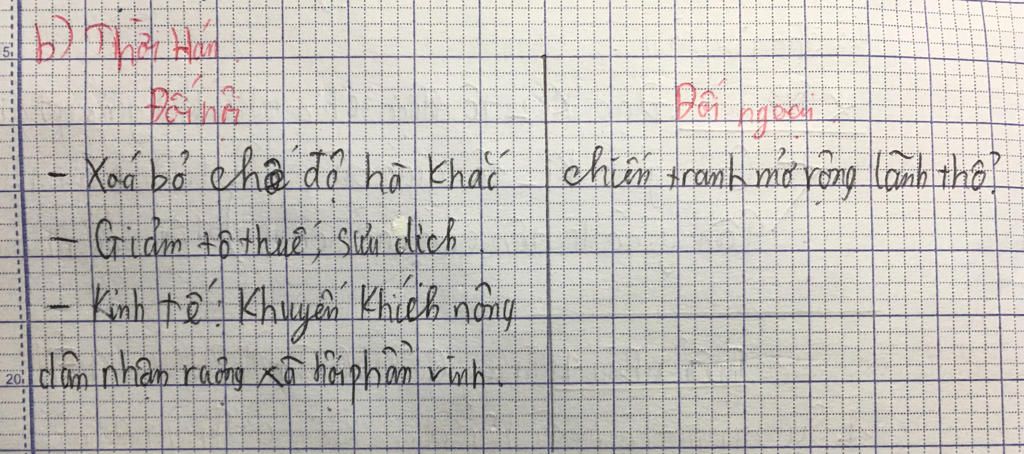 5
b) Thời Hán
Đối nội
Đối ngoại
- Xoá bỏ chế độ hà khắc
chiến tranh mở rộng lãnh thổ
- Giảm tô thuế, sưu dịch
- Kinh tế: Khuyến khích nông
20 dân nhận ruộng xã hội phồn vinh.